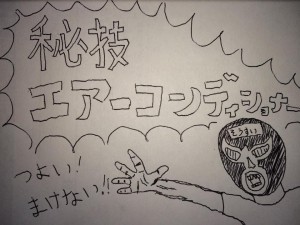 秘技
エアーコンディショナー
つよい!
まけない!!
そうすい